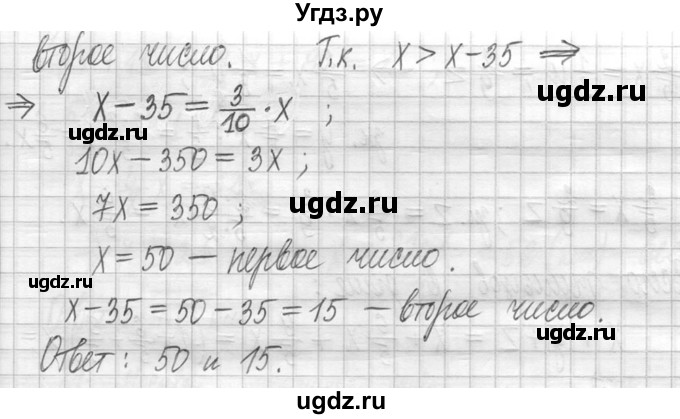 Угдз.ру
второе число. Т.к. x > x-35 ⇒
⇒ x-35 = 3/10 · x ;
ugdz.ru ugdz.ru
10x-350 = 3x ;
7x = 350 ; ugdz.ru
x = 50 — первое число.
ugdz.ru ugdz.ru
x-35 = 50-35 = 15 — второе число.
ugdz.ru
Ответ: 50 и 15.
ugdz.ru